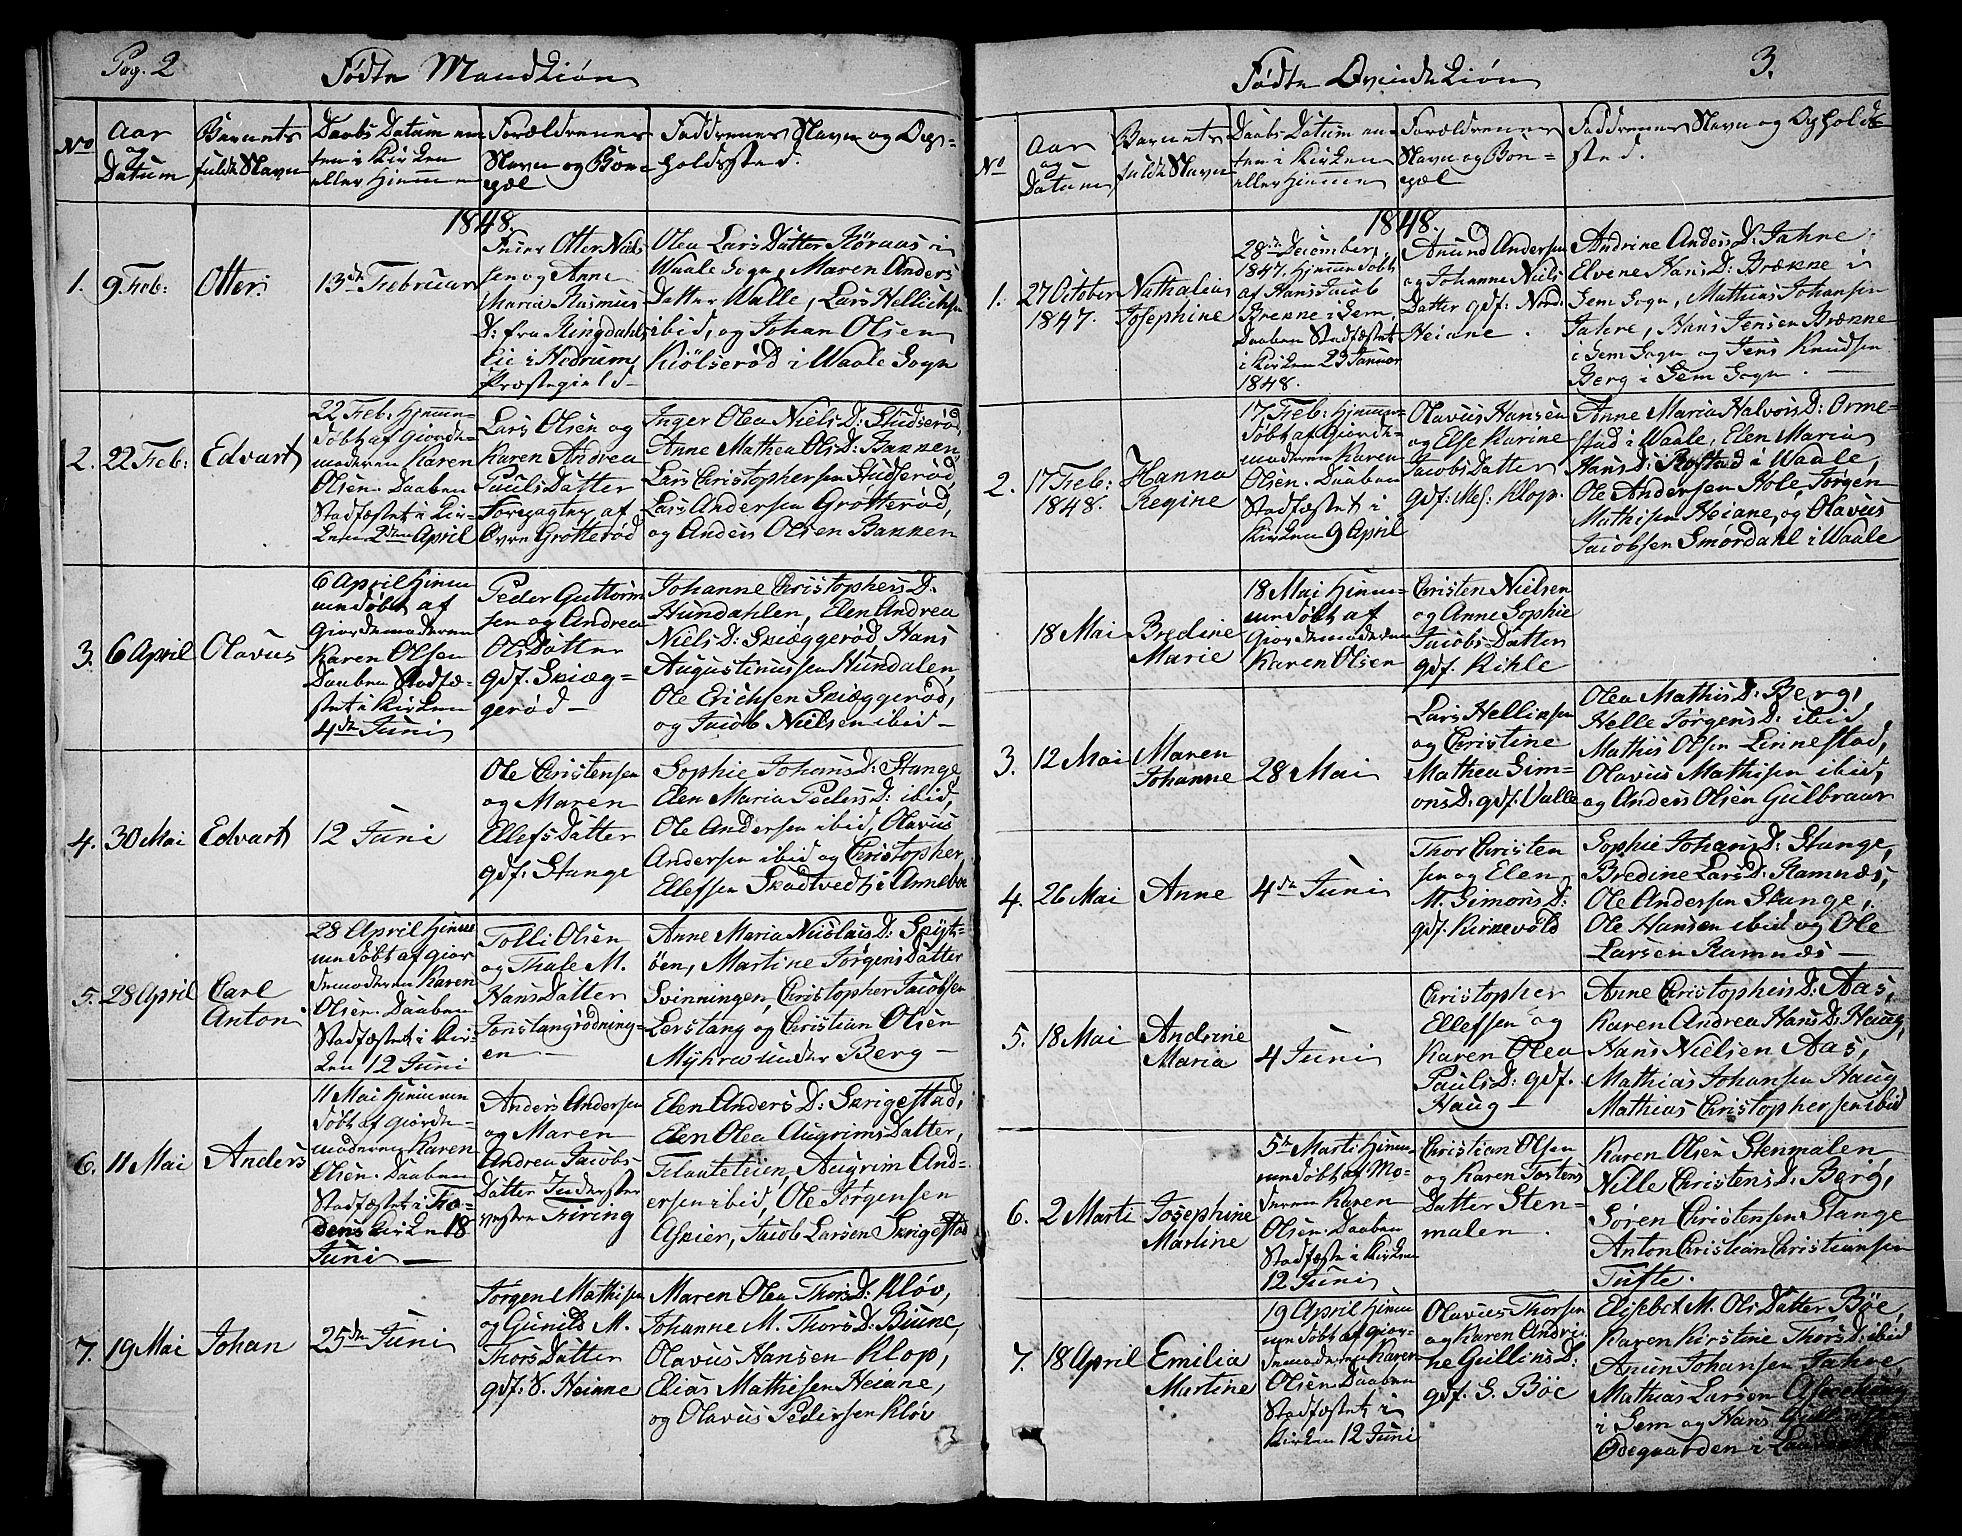 Pag. 2
Födte Mandkiön
No
Aar
og
Datum
Barnets
fulde Navn
Daabs Datum en
ten i Kirken
eller Hjemme
Forældrenes
Navn og Bo-
pæl
Faddrenes Navn og Op-
holdssted.
1848.
1.
9 Feb:
Otter.
13de Februar
Otter Niel-
sen og Anne
Maria Rasmus
D: fra Ringdahls
Eie i Hedrums
Præstegield
Olea Lars Datter Köraas i
Waale Sogn, Maren Anders
Datter Walle, Lars Hellichsen
ibid, og Johan Olsen
Kiölseröd i Waale Sogn
2.
22 Feb:
Edvart
22 Feb: Hjemme
döbt af Giorde-
moderen Karen
Olsen. Daaben
Stadfæstet i Kir-
ken 2den April
Lars Olsen og
Karen Andrea
Pauls Datter
Foregagley af
Övre Grotteröd
Inger Olea Niels D: Studseröd,
Anne Mathea Ols D: Bakken,
Lars Christophersen Studseröd,
Lars Andersen Grotteröd,
og Anders Olsen Bakken
3.
6 April
Olavus
6 April Hjem
me döbt af
Giordemoderen
Karen Olsen
Daaben Stadfæ-
stet i Kirken
4de Juni
Peder Guttorm
sen og Andrea
Ols Datter
gdf. Skiæg-
geröd
Johanne Christophers D:
Hundahlen, Elen Andrea
Niels D: Skiæggeröd Hans
Augustinussen Hundalen,
Ole Erichsen Skiæggeröd,
og Jacob Nielsen ibid
4.
30 Mai
Edvart
12 Juni
Ole Christensen
og Maren
Ellefs Datter
gdf. Stange
Sophie Johans D: Stange
Elen Maria Peders D: ibid,
Ole Andersen ibid, Olavus
Andersen ibid og Christopher
Ellefsen Skadtvedt i Anneboe
5.
28 April
Carl
Anton
28 April Hjem
me döbt af gior
demoderen Karen
Olsen. Daaben
Stadfæstet i Kir-
ken 12 Juni
Tolli Olsen
og Thale M.
Hans Datter
Jonstangrödning-
en
Anne Maria Nicolais D: Spÿt-
öen, Martine Jörgens Datter
Svinningen, Christopher Jacobsen
Lerstang og Christian Olsen
Mÿhra under Berg
6.
11 Mai
Anders
11 Mai Hjemme
döbt af giorde-
moderen Karen
Olsen. Daaben
Stadfæstet i Fra-
dens Kirken 18
Juni
Anders Andersen
og Maren
Andrea Jacobs-
Datter Inderster
vestre Firing
Elen Anders D: Skrigestad,
Elen Olea Augrims Datter,
Flauteteien, Augrim And-
ersen ibid, Ole Jörgensen
Askier, Jacob Larsen Skrigestad
7.
19 Mai
Johan
25de Juni
Jörgen Mathisen
og Gunild M.
Thors Datter
gdf. S. Heiane
Maren Olea Thors D: Klöv,
Johanne M. Thors D: Biune,
Olavus Hansen Klop,
Elias Mathisen Heiane,
og Olavus Pedersen Klöv
3.
Födte Qvindekiön
No
Aar
og
Datum
Barnets
fulde Navn
Daabs Datum en
ten i Kirken
eller Hjemme
Forældrenes
Navn og Bo-
pæl
Faddrenes Navn og Ophold-
sted.
1848.
1.
27 October
1847.
Nathalia
Josephine
28de December
1847. Hjemmedöbt
af Hans Jacob
Brekne i Sem,
Daaben Stadfæstet
i Kirken 23 Januar
1848.
Amund Andersen
og Johanne Niels
Datter gdf: Nord:
Heiane.
Andrine Anders D: Jahre
Elvene Hans D: Brækne i
Sem Sogn, Mathias Johansen
Jahre, Hans Jensen Brækne
i Sem Sogn og Jens Knudsen
Berg i Sem Sogn.
2.
17 Feb:
1848.
Hanna
Regine
17 Feb: Hjemme-
döbt af Giorde-
moderen Karen
Olsen. Daaben
Stadfæstet i
Kirken 9 April
Olavus Hansen
og Else Karine
Jacobs Datter
gdf: Mel: Klop.
Anne Maria Halvors D: Orme-
stad i Waale, Elen Maria
Hans D: Rostad i Waale,
Ole Andersen Hole, Jörgen
Mathisen Heiane, og Olavus
Jacobsen Smördahl i Waale
18 Mai
Bredine
Marie
18 Mai Hjem-
me döbt af
Giordemoderen
Karen Olsen
Christen Nielsen
og Anne Sophie
Jacobs Datter
gdf. Kihle
3.
12 Mai
Maren
Johanne
28 Mai
Lars Helliksen
og Christine
Mathea Sim-
ons D: gdf. Valle
Olea Mathis D: Berg,
Helle Jörgens D: ibid
Mathis Olsen Linnestad,
Olavus Mathisen ibid,
og Anders Olsen Gulbraar
4.
26 Mai
Anne
4de Juni
Thor Christen
sen og Elen
M. Simons D:
gdf. Kirkevold
Sophie Johans D: Stange,
Bredine Lars D: Ramnæs,
Ole Andersen Stange,
Ole Hansen ibid og Ole
Larsen Ramnæs
5.
18 Mai
Andrine
Maria
4 Juni
Christopher
Ellefsen og
Karen Olea
Pauls D: gdf.
Haug
Anne Christophers D: Aas,
Karen Andrea Hans D: Haug,
Hans Nielsen Aas,
Mathias Johansen Haug
Mathias Christophersen ibid
6.
2 Marti
Josephine
Martine
5te Marti Hjem
me döbt af Mo-
deren Karen
Olsen. Daaben
Stadfæste i Kirken
12 Juni
Christian Olsen
og Karen Tostens
Datter Sten-
malen.
Karen Olsen Stenmalen
Nille Christens D: Berg,
Sören Christensen Stange
Anton Christian Christiansen
Tufte.
7.
18 April
Emilia
Martine
19 April Hjem
me döbt af gior-
demoderen Karen
Olsen. Daaben
Stadfæstet i
Kirken 12 Juni
Olavus Thorsen
og Karen Andri-
ne Gullins D:
gdf. G. Böe
Elisebet M. Ols Datter Böe,
Karen Kirstine Thors D: ibid
Anun Johansen Jahre,
Mathias Larsen
i Sem og Hans
Ödegaarden i